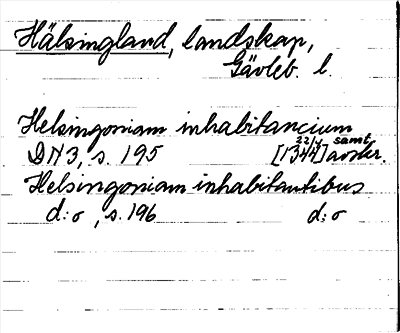 Hälsingland, landskap,
Gävleb. l.
Helsingoniam inhabitancium
DN 3, s. 195 [22/7 1344] samt. avskr.
Helsingoniam inhabitantibus
d:o, s. 196 d:o